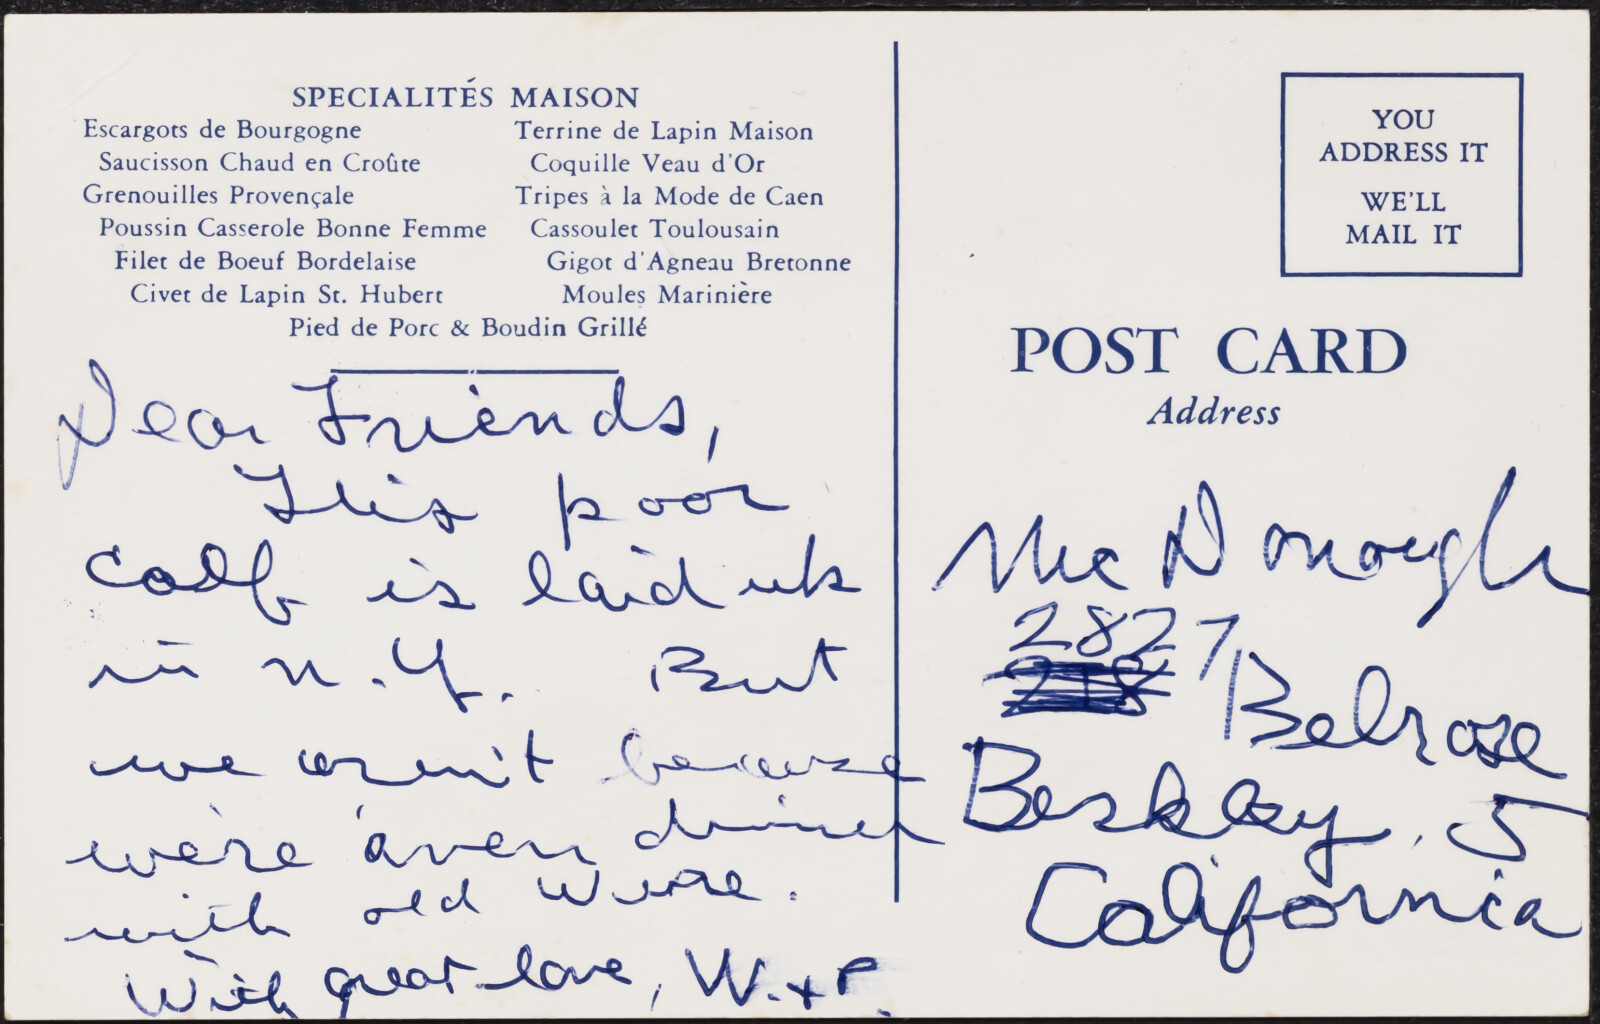 SPECIALITÉS MAISON
Escargots de Bourgogne
Saucisson Chaud en Croûte
Grenouilles Provençale
Poussin Casserole Bonne Femme
Filet de Boeuf Bordelaise
Civet de Lapin St. Hubert
Terrine de Lapin Maison
Coquille Veau d'Or
Tripes à la Mode de Caen
Cassoulet Toulousain
Gigot d'Agneau Bretonne
Moules Marinière
Pied de Porc & Boudin Grillé
Dear Friends,
This poor
calf is laid up
in N.Y. But
we aren't because
we're over dinner
with old wine.
With great love, W. + P.
YOU
ADDRESS IT
WE'LL
MAIL IT
POST CARD
Address
McDonough
2827
Belrose
Berkley, 5
California